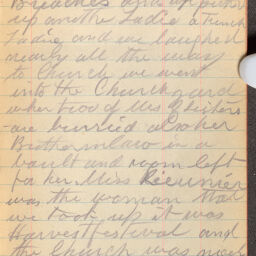 Breaches and we picked
up another Ladie a French
Ladie and we laughed
nearly all the way
to Church we went
into the Church yard
wher two of Mrs G Sisters
are burried also her
Brotherinlaw in a
vault and room left
for her. Miss Rieunier
was the woman that
we took up it was
Harvestfestival and
the Church was nice